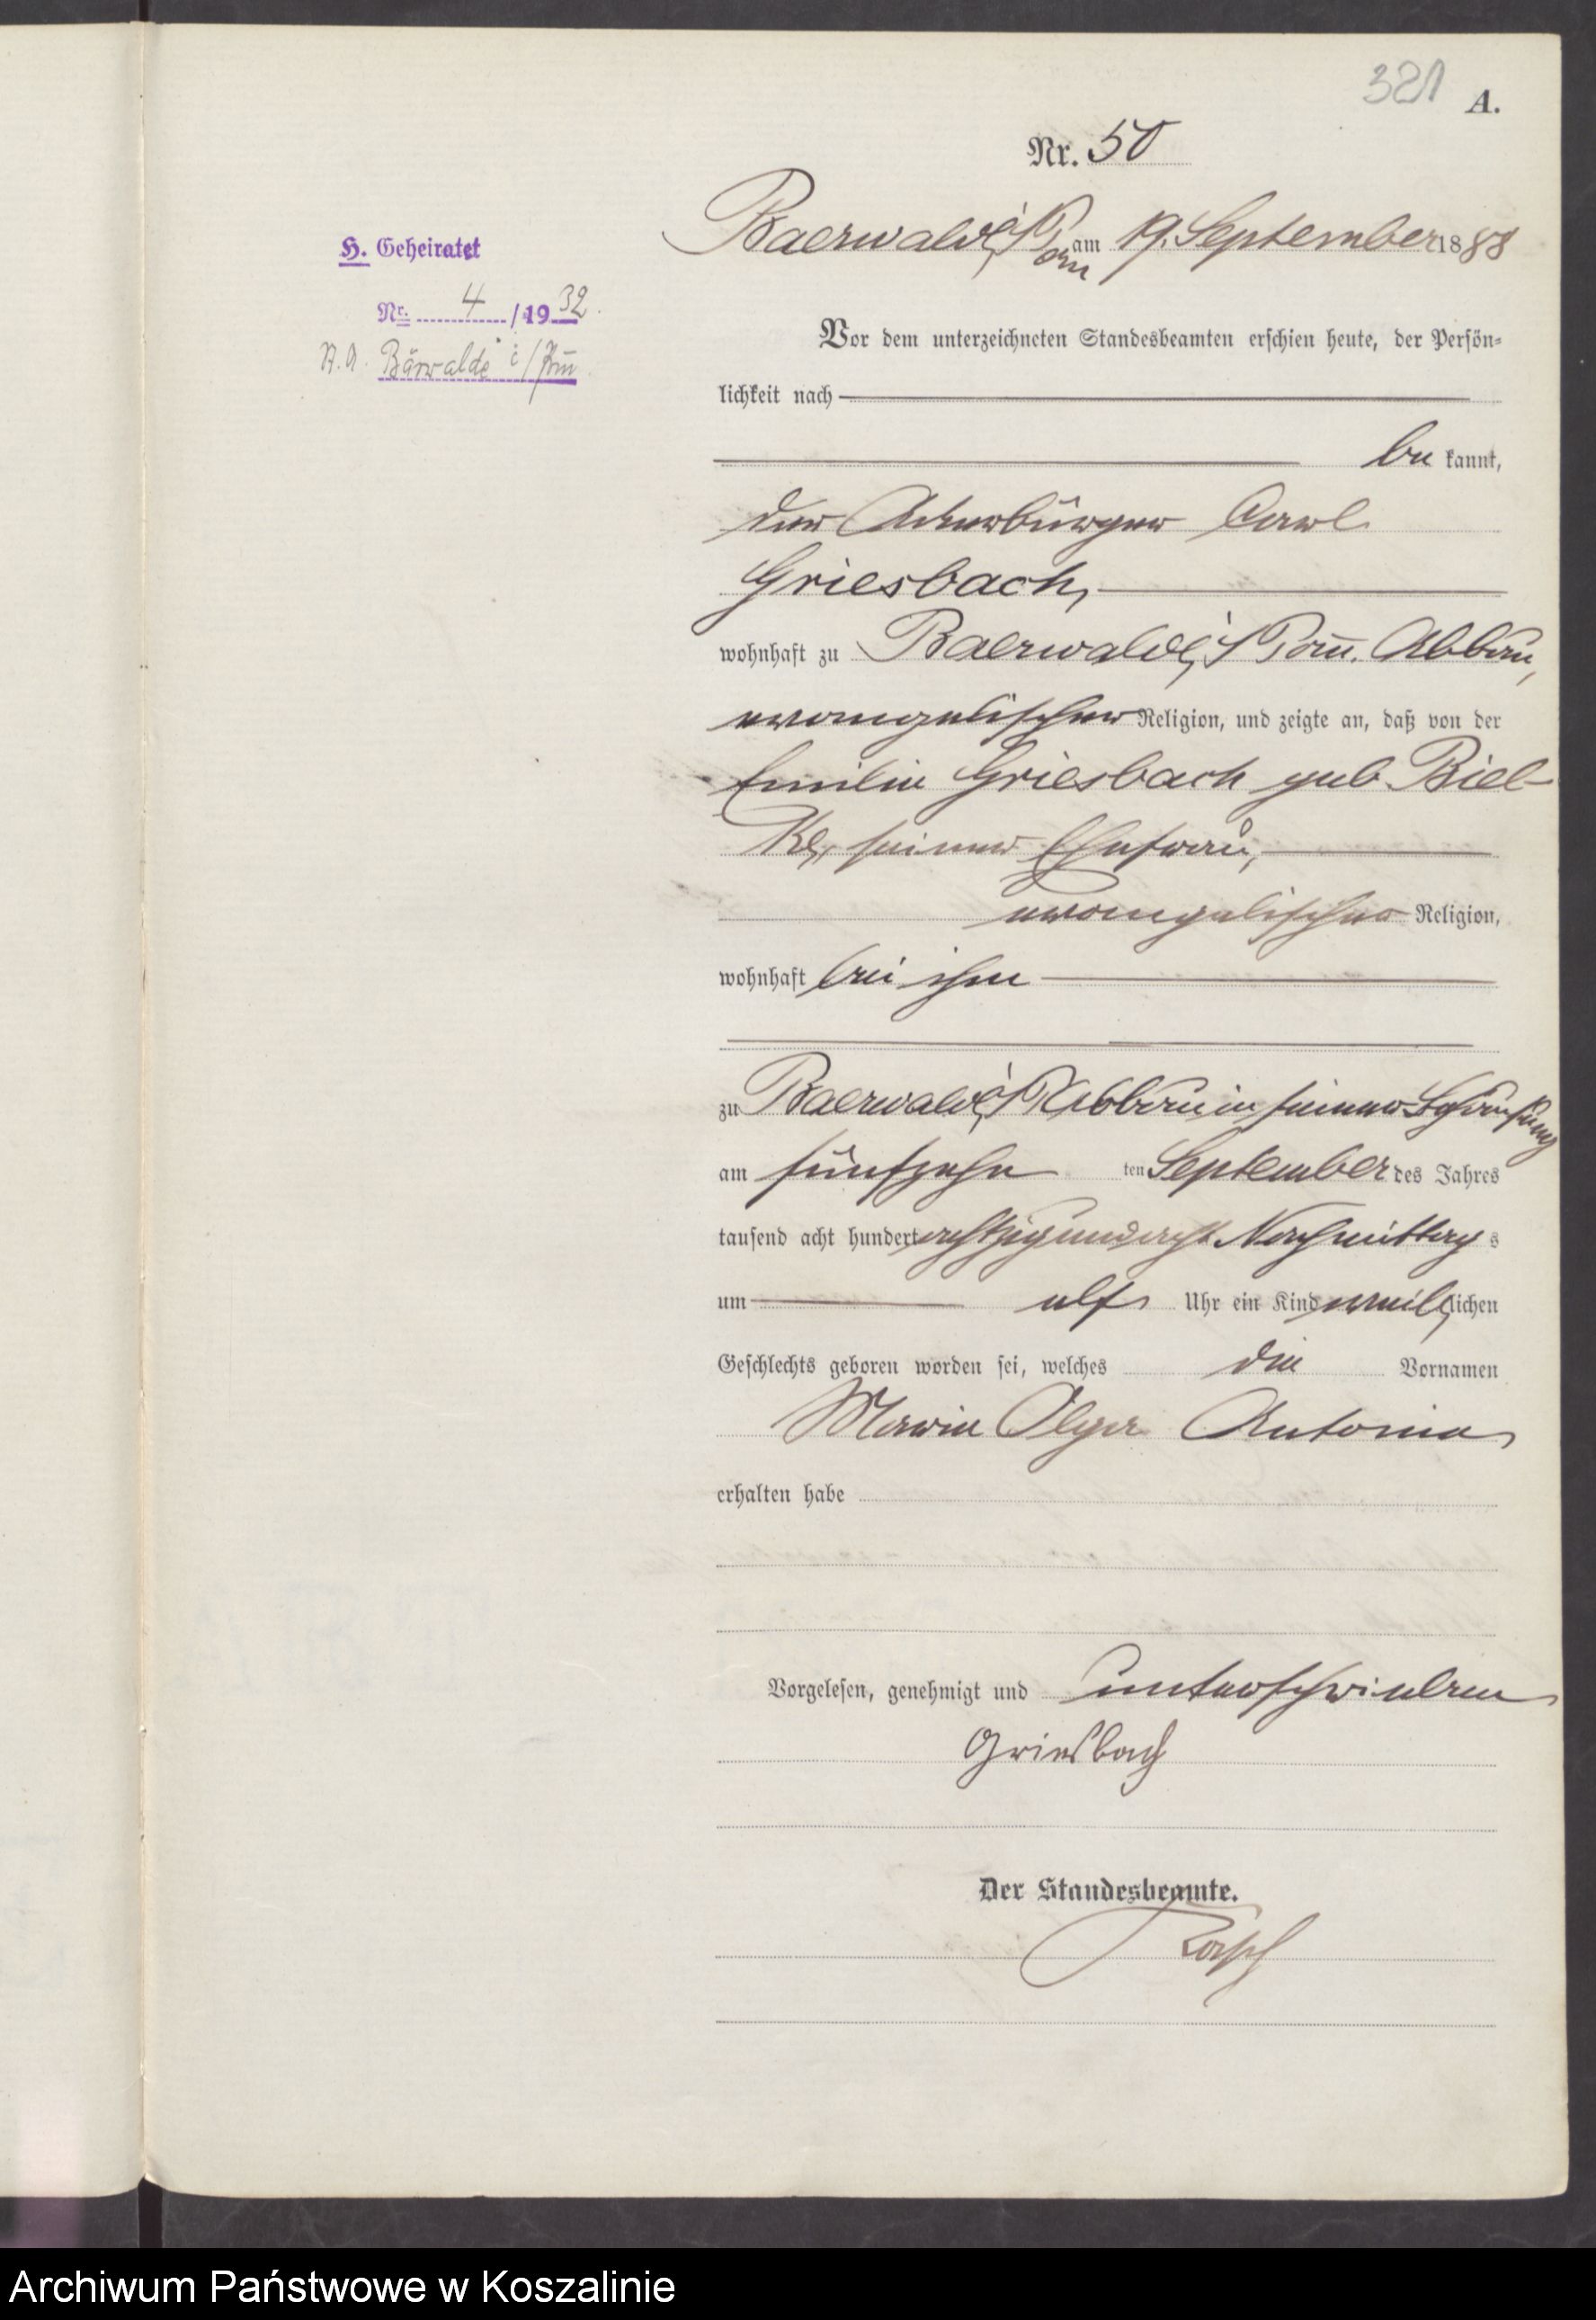 321 A.
Nr. 50
Baerwalde i/Pom am 19. September 1888
H. Geheiratet
Nr. 4 / 1932.
Bärwalde i/Pom
Vor dem unterzeichneten Standesbeamten erschien heute, der Persön-
lichkeit nach
be kannt,
der Ackerbürger Carl
Griesbach,
wohnhaft zu Baerwalde i/Pom. Abbau,
evangelischer Religion, und zeigte an, daß von der
Emilie Griesbach geb. Biel-
ke, seiner Ehefrau,
evangelischer Religion,
wohnhaft bei ihm
zu Baerwalde i/P Abbau in seiner Behausung
am fünfzehn ten September des Jahres
tausend acht hundert achtzig und acht Nachmittag s
um elf Uhr ein Kind weib lichen
Geschlechts geboren worden sei, welches die Vornamen
Marie Olga Antonie
erhalten habe
Vorgelesen, genehmigt und unterschrieben
Griesbach
Der Standesbeamte.
Archiwum Państwowe w Koszalinie